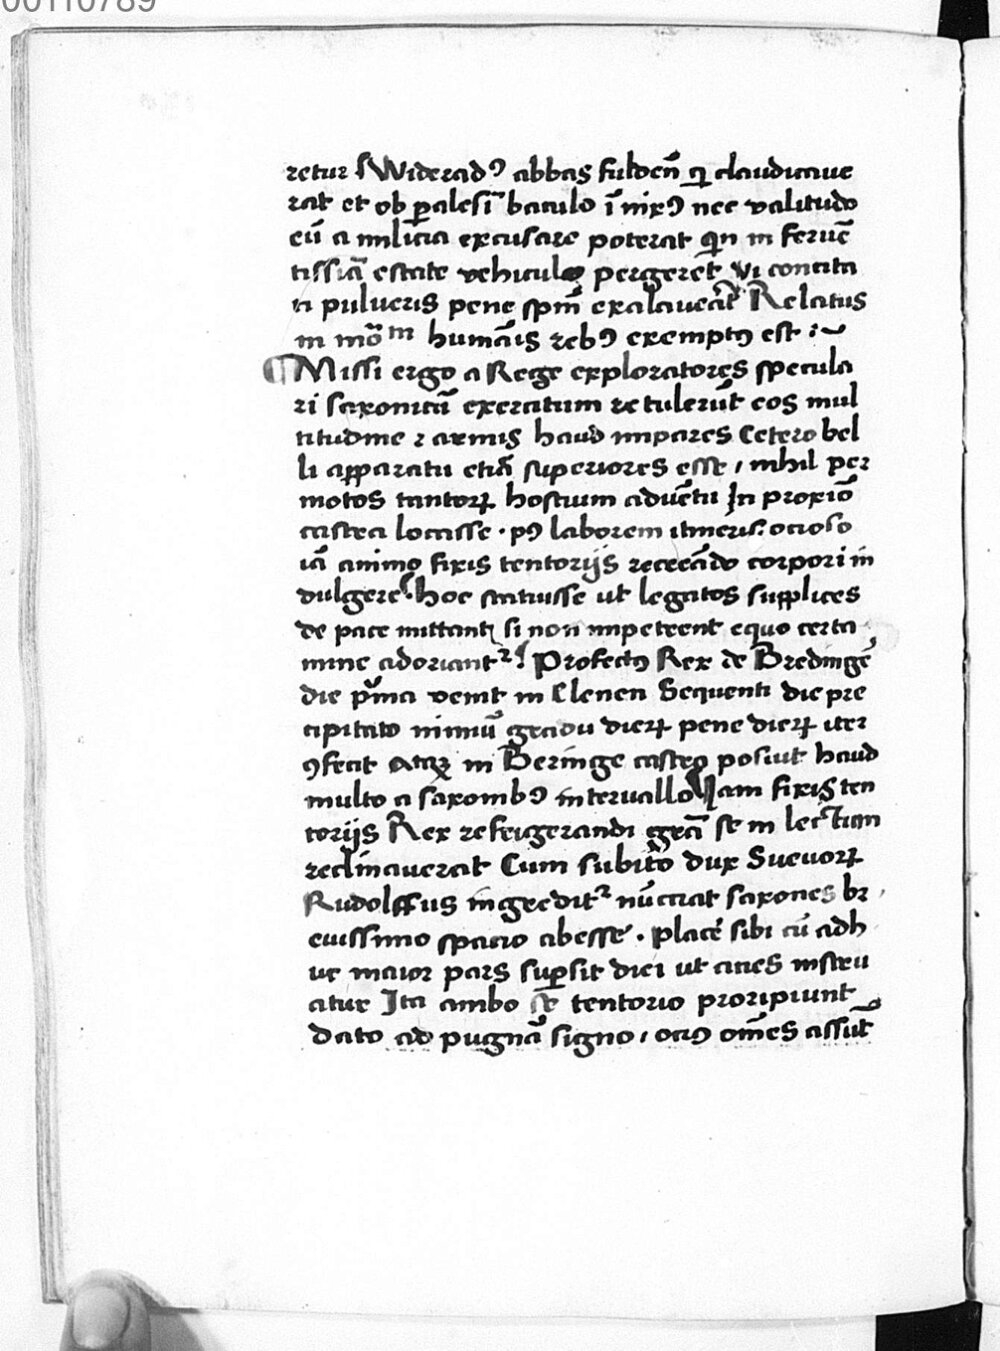 00110789
retur Widerad9 abbas fuldeñ qi claudicaue
rat et ob paralesī baculo īnix9 nec valitudo
eū a milicia excusare poterat quin in feruē
tissiā estate vehiculo pergeret Vi concita
ti pulueris pene spm̄ exalauerāt Relatus
in mōm humāis reb9 exempt9 est
Missi ergo a Rege exploratores specula
ri saxonicū exercitum retulerūt eos mul
titudine ⁊ armis haud impares Cetero bel
li apparatu etiā superiores esse / nihil per
motos tantoꝝ hostium aduētu In proxiō
castra locasse · p9 laborem itineris ocioso
iā animo fixis tentorijs recreādo corpori in
dulgere hoc statuisse ut legatos supplices
de pace mittant si non impetrent equo certa
mine adoriant᷑ Profect9 Rex de Bredingē
die pͥma venit in Elenen Sequenti die pre
cipitato nimiū gradu dieꝝ pene dieꝝ iter
ꝯfecit Atqꝫ in Beringe castra posuit haud
multo a saxonib9 interuallo Iam fixis ten
torijs Rex refrigerandi grā se in lectum
reclinauerat Cum subito dux Sueuoꝝ
Rudolffus ingredit᷑ nūciat saxones br
euissimo spacio abesse · placē sibi cū adh
uc maior pars supersit diei ut acies instru
atur Ita ambo se tentorio proripiunt
Dato ad pugnā signo / oci9 oēs assūt